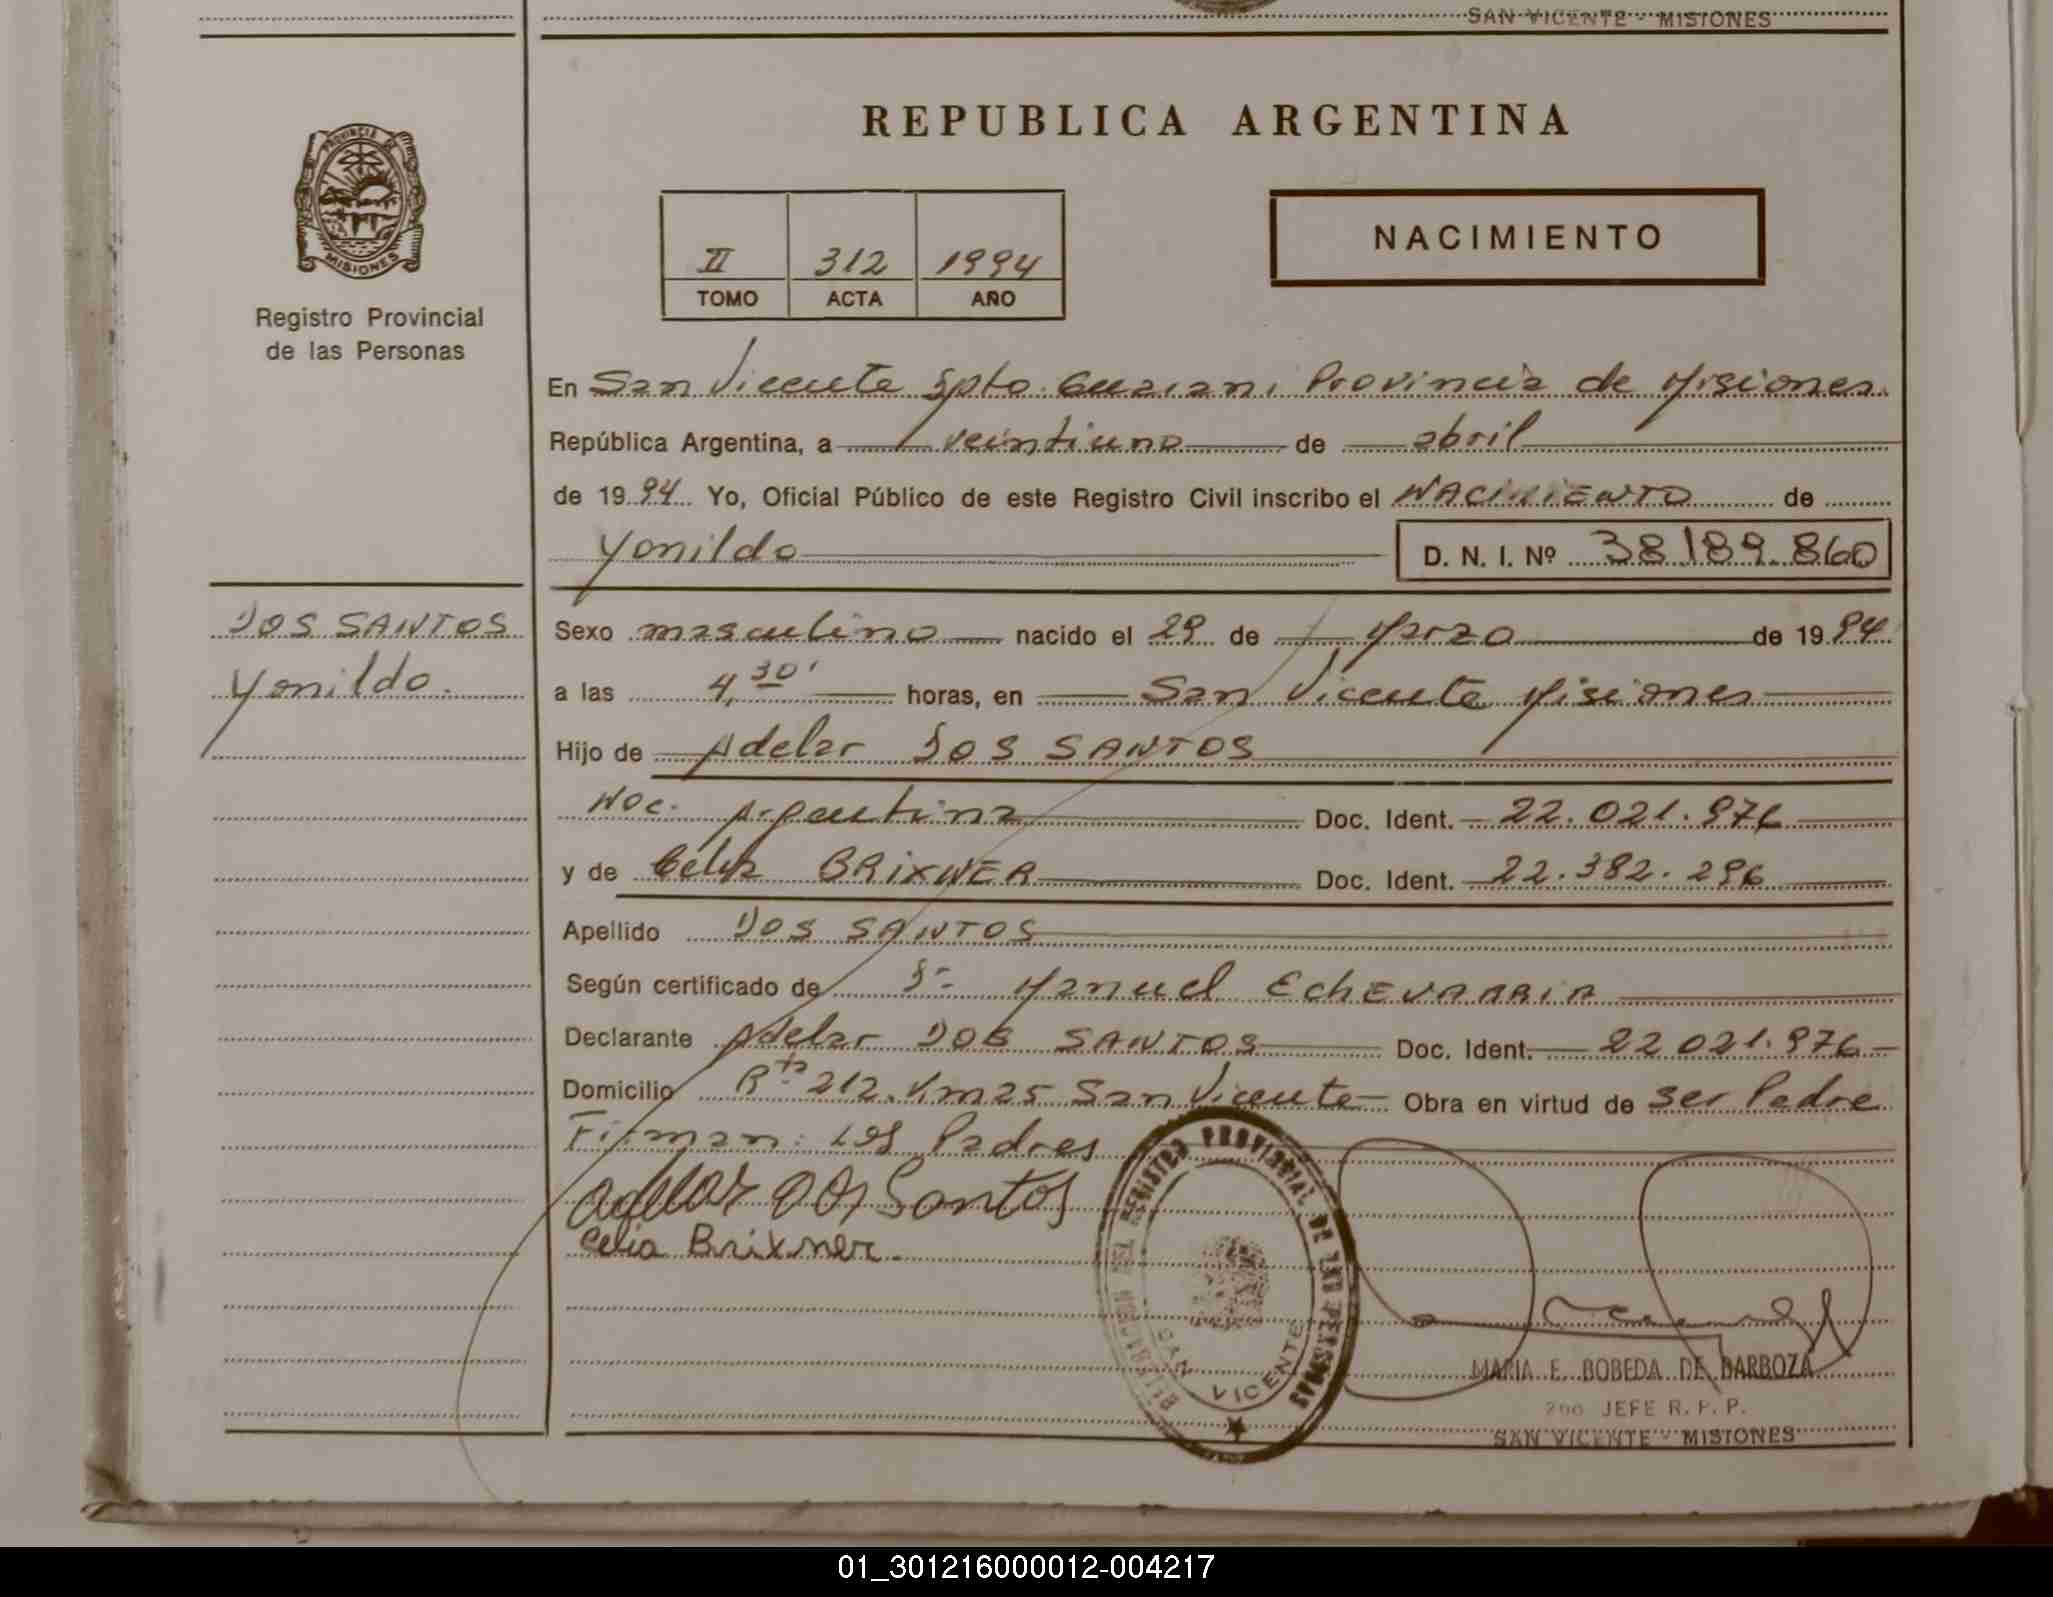 SAN VICENTE - MISIONES
PROVINCIA
MISIONES
Registro Provincial
de las Personas
REPUBLICA ARGENTINA
II 312 1994
TOMO ACTA AÑO
NACIMIENTO
En San Vicente Dpto. Guarani Provincia de Misiones
República Argentina, a veintiuno de abril
de 1994 Yo, Oficial Público de este Registro Civil inscribo el NACIMIENTO de
Yonildo D. N. I. Nº 38.189.860
DOS SANTOS
Yonildo.
Sexo masculino nacido el 29 de Marzo de 1994
a las 4,30' horas, en San Vicente Misiones
Hijo de Adelar DOS SANTOS
Nac. Argentina Doc. Ident. 22.021.976
y de Celia BRIXNER Doc. Ident. 22.382.296
Apellido DOS SANTOS
Según certificado de Dr. Manuel ECHEVARRIA
Declarante Adelar DOS SANTOS Doc. Ident. 22.021.976
Domicilio Rta 212. Km25 San Vicente Obra en virtud de ser Padre
Firman: Los Padres
Adelar dos Santos
Celia Brixner.
DEL REGISTRO PROVINCIAL DE LAS PERSONAS
SAN VICENTE
MARIA E. BOBEDA DE BARBOZA
2do JEFE R. P. P.
SAN VICENTE - MISIONES
01_301216000012-004217